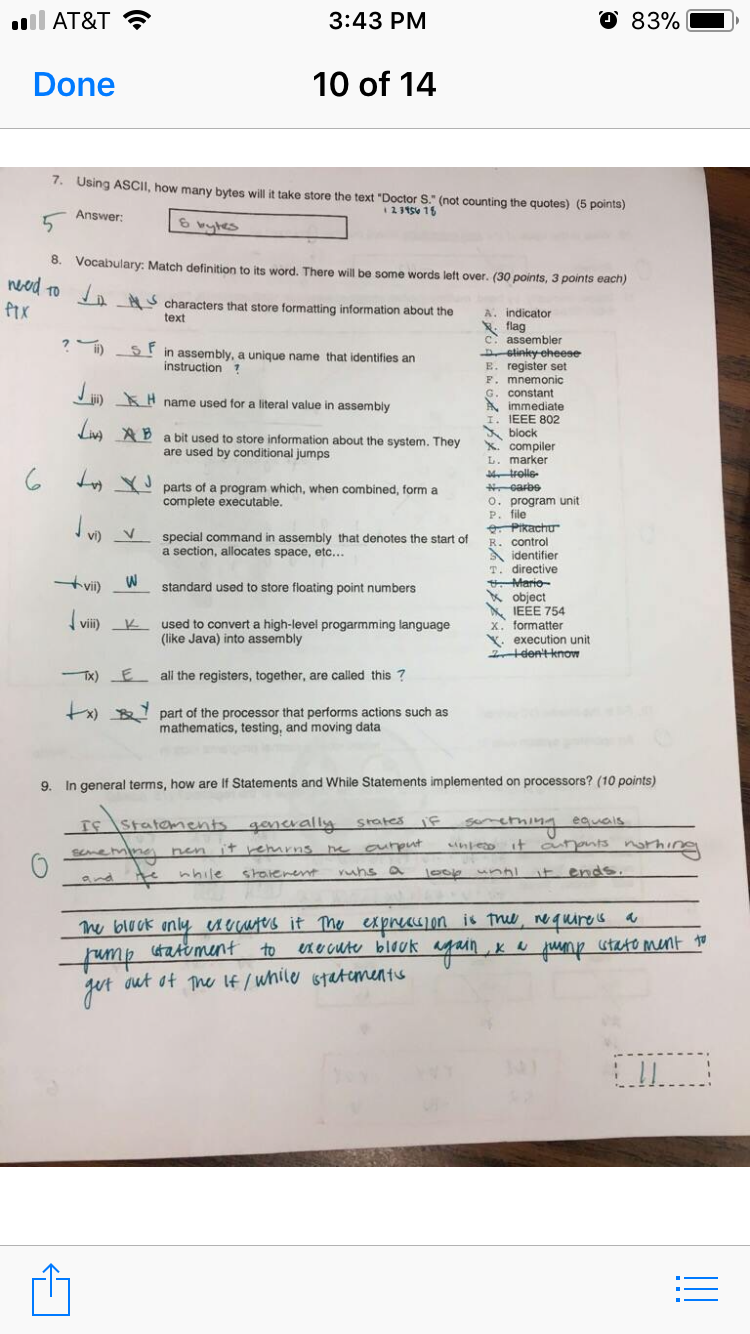 AT&T 3:43 PM 83%
Done 10 of 14
7. Using ASCII, how many bytes will it take store the text "Doctor S." (not counting the quotes) (5 points)
1 2 3 4 5 6 7 8
5 Answer: 8 bytes
8. Vocabulary: Match definition to its word. There will be some words left over. (30 points, 3 points each)
need to
fix
i) S characters that store formatting information about the
text
? ii) S F in assembly, a unique name that identifies an
instruction ?
iii) K H name used for a literal value in assembly
iv) A B a bit used to store information about the system. They
are used by conditional jumps
6 v) Y J parts of a program which, when combined, form a
complete executable.
vi) V special command in assembly that denotes the start of
a section, allocates space, etc...
vii) W standard used to store floating point numbers
viii) K used to convert a high-level progarmming language
(like Java) into assembly
ix) E all the registers, together, are called this ?
x) Y part of the processor that performs actions such as
mathematics, testing, and moving data
A. indicator
B. flag
C. assembler
D. stinky cheese
E. register set
F. mnemonic
G. constant
H. immediate
I. IEEE 802
J. block
K. compiler
L. marker
M. trolls
N. carbs
O. program unit
P. file
Q. Pikachu
R. control
S. identifier
T. directive
U. Mario
V. object
W. IEEE 754
X. formatter
Y. execution unit
Z. I don't know
9. In general terms, how are If Statements and While Statements implemented on processors? (10 points)
If Statements generally states if something equals
something then it returns the output unless it outputs nothing
0 and the while statement runs a loop until it ends.
The block only executes if the expression is true, requires a
jump statement to execute block again, & a jump statement to
get out of the if/while statements
11